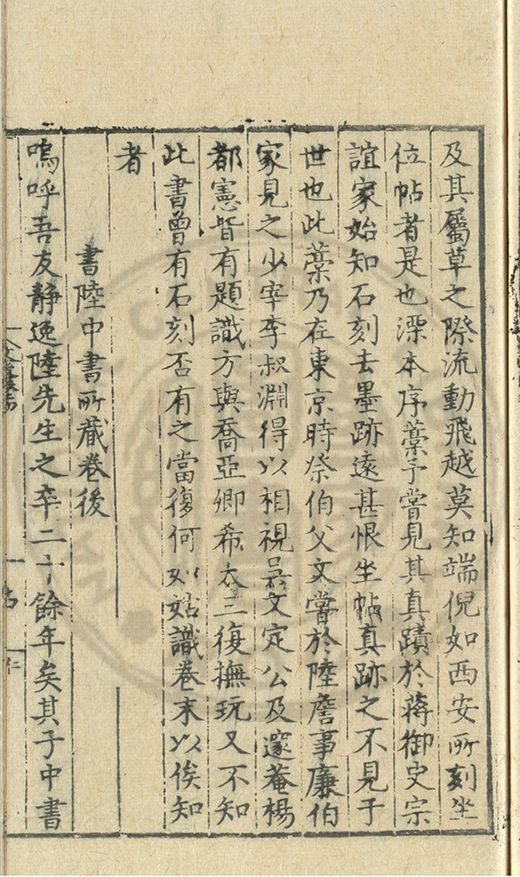 及其屬草之際流動飛越莫知端倪如西安所刻坐
位帖者是也深本序藁予嘗見其真蹟於蔣御史宗
誼家始知石刻去墨跡遠甚恨坐帖真跡之不見于
世也此藁乃在東京時祭伯父文嘗於陸詹事廉伯
家見之少宰李叔淵得以相視吳文定公及邃菴楊
都憲皆有題識方與喬亞卿希大三復撫玩又不知
此書曾有石刻否有之當復何如姑識卷末以俟知
者
書陸中書所藏卷後
嗚呼吾友靜逸陸先生之卒二十餘年矣其子中書